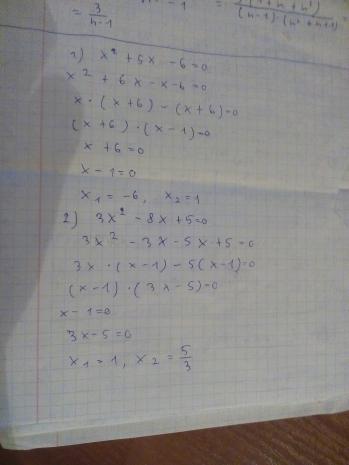 = 3/(n-1)
1) x² + 5x - 6 = 0
x² + 6x - x - 6 = 0
x · (x + 6) - (x + 6) = 0
(x + 6) · (x - 1) = 0
x + 6 = 0
x - 1 = 0
x₁ = -6, x₂ = 1
2) 3x² - 8x + 5 = 0
3x² - 3x - 5x + 5 = 0
3x · (x - 1) - 5(x - 1) = 0
(x - 1) · (3x - 5) = 0
x - 1 = 0
3x - 5 = 0
x₁ = 1, x₂ = 5/3